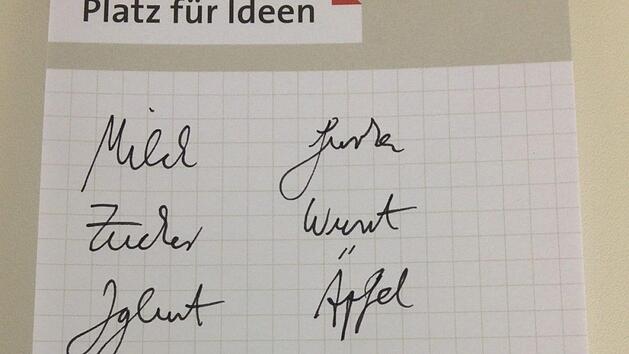 Platz für Ideen
Milch
Zucker Wurst
Joghurt Äpfel